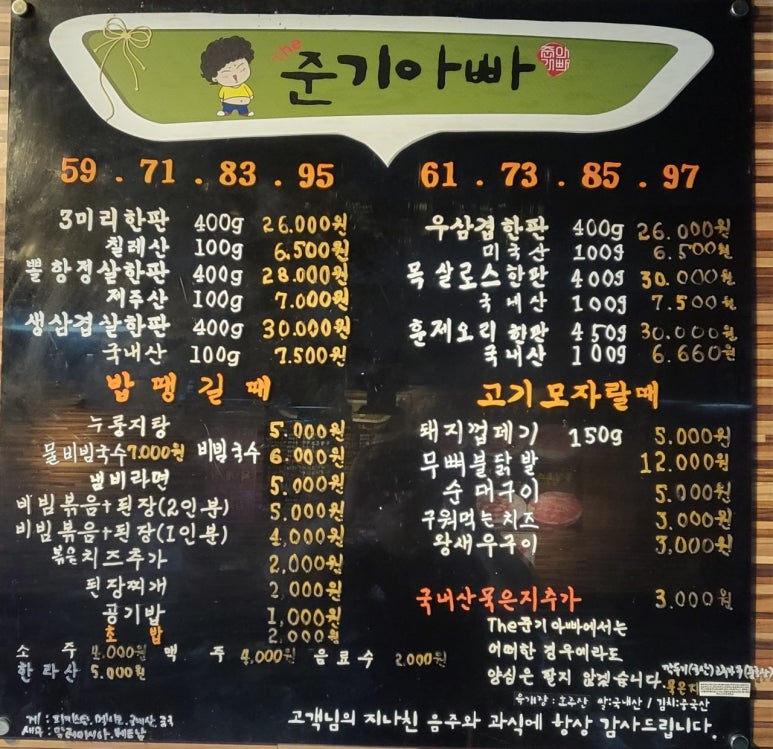 The 준기아빠 준기아빠
59 . 71 . 83 . 95
61 . 73 . 85 . 97
3미리한판 400g 26.000원
칠레산 100g 6.500원
뽈항정살한판 400g 28.000원
제주산 100g 7.000원
생삼겹살한판 400g 30.000원
국내산 100g 7.500원
우삼겹한판 400g 26.000원
미국산 100g 6.500원
목살로스한판 400g 30.000원
국내산 100g 7.500원
훈제오리한판 450g 30.000원
국내산 100g 6.660원
밥땡길때
누룽지탕 5.000원
물비빔국수 7.000원 비빔국수 6.000원
냄비라면 5.000원
비빔볶음+된장(2인분) 5.000원
비빔볶음+된장(1인분) 4,000원
볶은치즈추가 2,000원
된장찌개 2,000원
공기밥 1,000원
초밥 2.000원
소주 4.000원 맥주 4,000원 음료수 2.000원
한라산 5.000원
고기모자랄때
돼지껍데기 150g 5.000원
무뼈불닭발 12.000원
순대구이 5.000원
구워먹는치즈 3,000원
왕새우구이 3,000원
국내산묵은지추가 3.000원
The준기아빠에서는
어떠한 경우에라도
양심은 팔지 않겠습니다.
묵은지
육개장:호주산 쌀:국내산 / 김치:중국산
고객님의 지나친 음주와 과식에 항상 감사드립니다.
새우: 말레이시아, 베트남